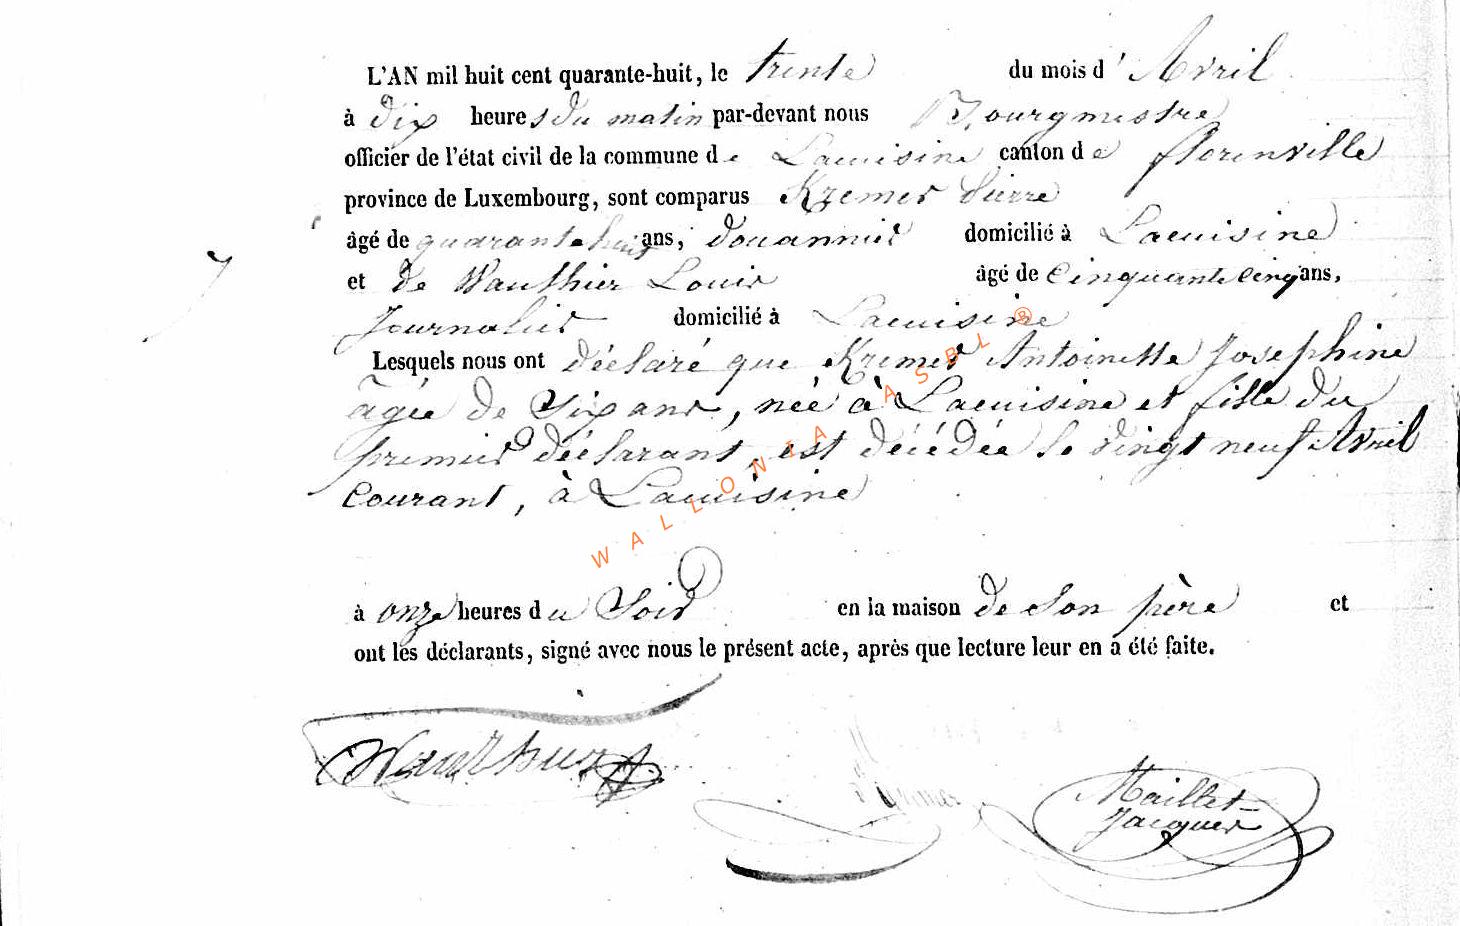 L'AN mil huit cent quarante-huit, le trente du mois d' Avril
à dix heures du matin par-devant nous Bourgmestre
officier de l'état civil de la commune de Lacuisine canton de florenville
province de Luxembourg, sont comparus Kremer Pierre
âgé de quarante huit ans, douannier domicilié à Lacuisine
et de Wauthier Louis âgé de Cinquante Cinq ans,
Journalier domicilié à Lacuisine
Lesquels nous ont déclaré que Kremer Antoinette Josephine
âgée de Six ans, née à Lacuisine et fille du
premier déclarant, est décédée le vingt neuf Avril
Courant, à Lacuisine
à onze heures du Soir en la maison de son père et
ont les déclarants, signé avec nous le présent acte, après que lecture leur en a été faite.
Wauthier
Kremer
Maillet
Jacques
WALLONIA ASBL ®
7